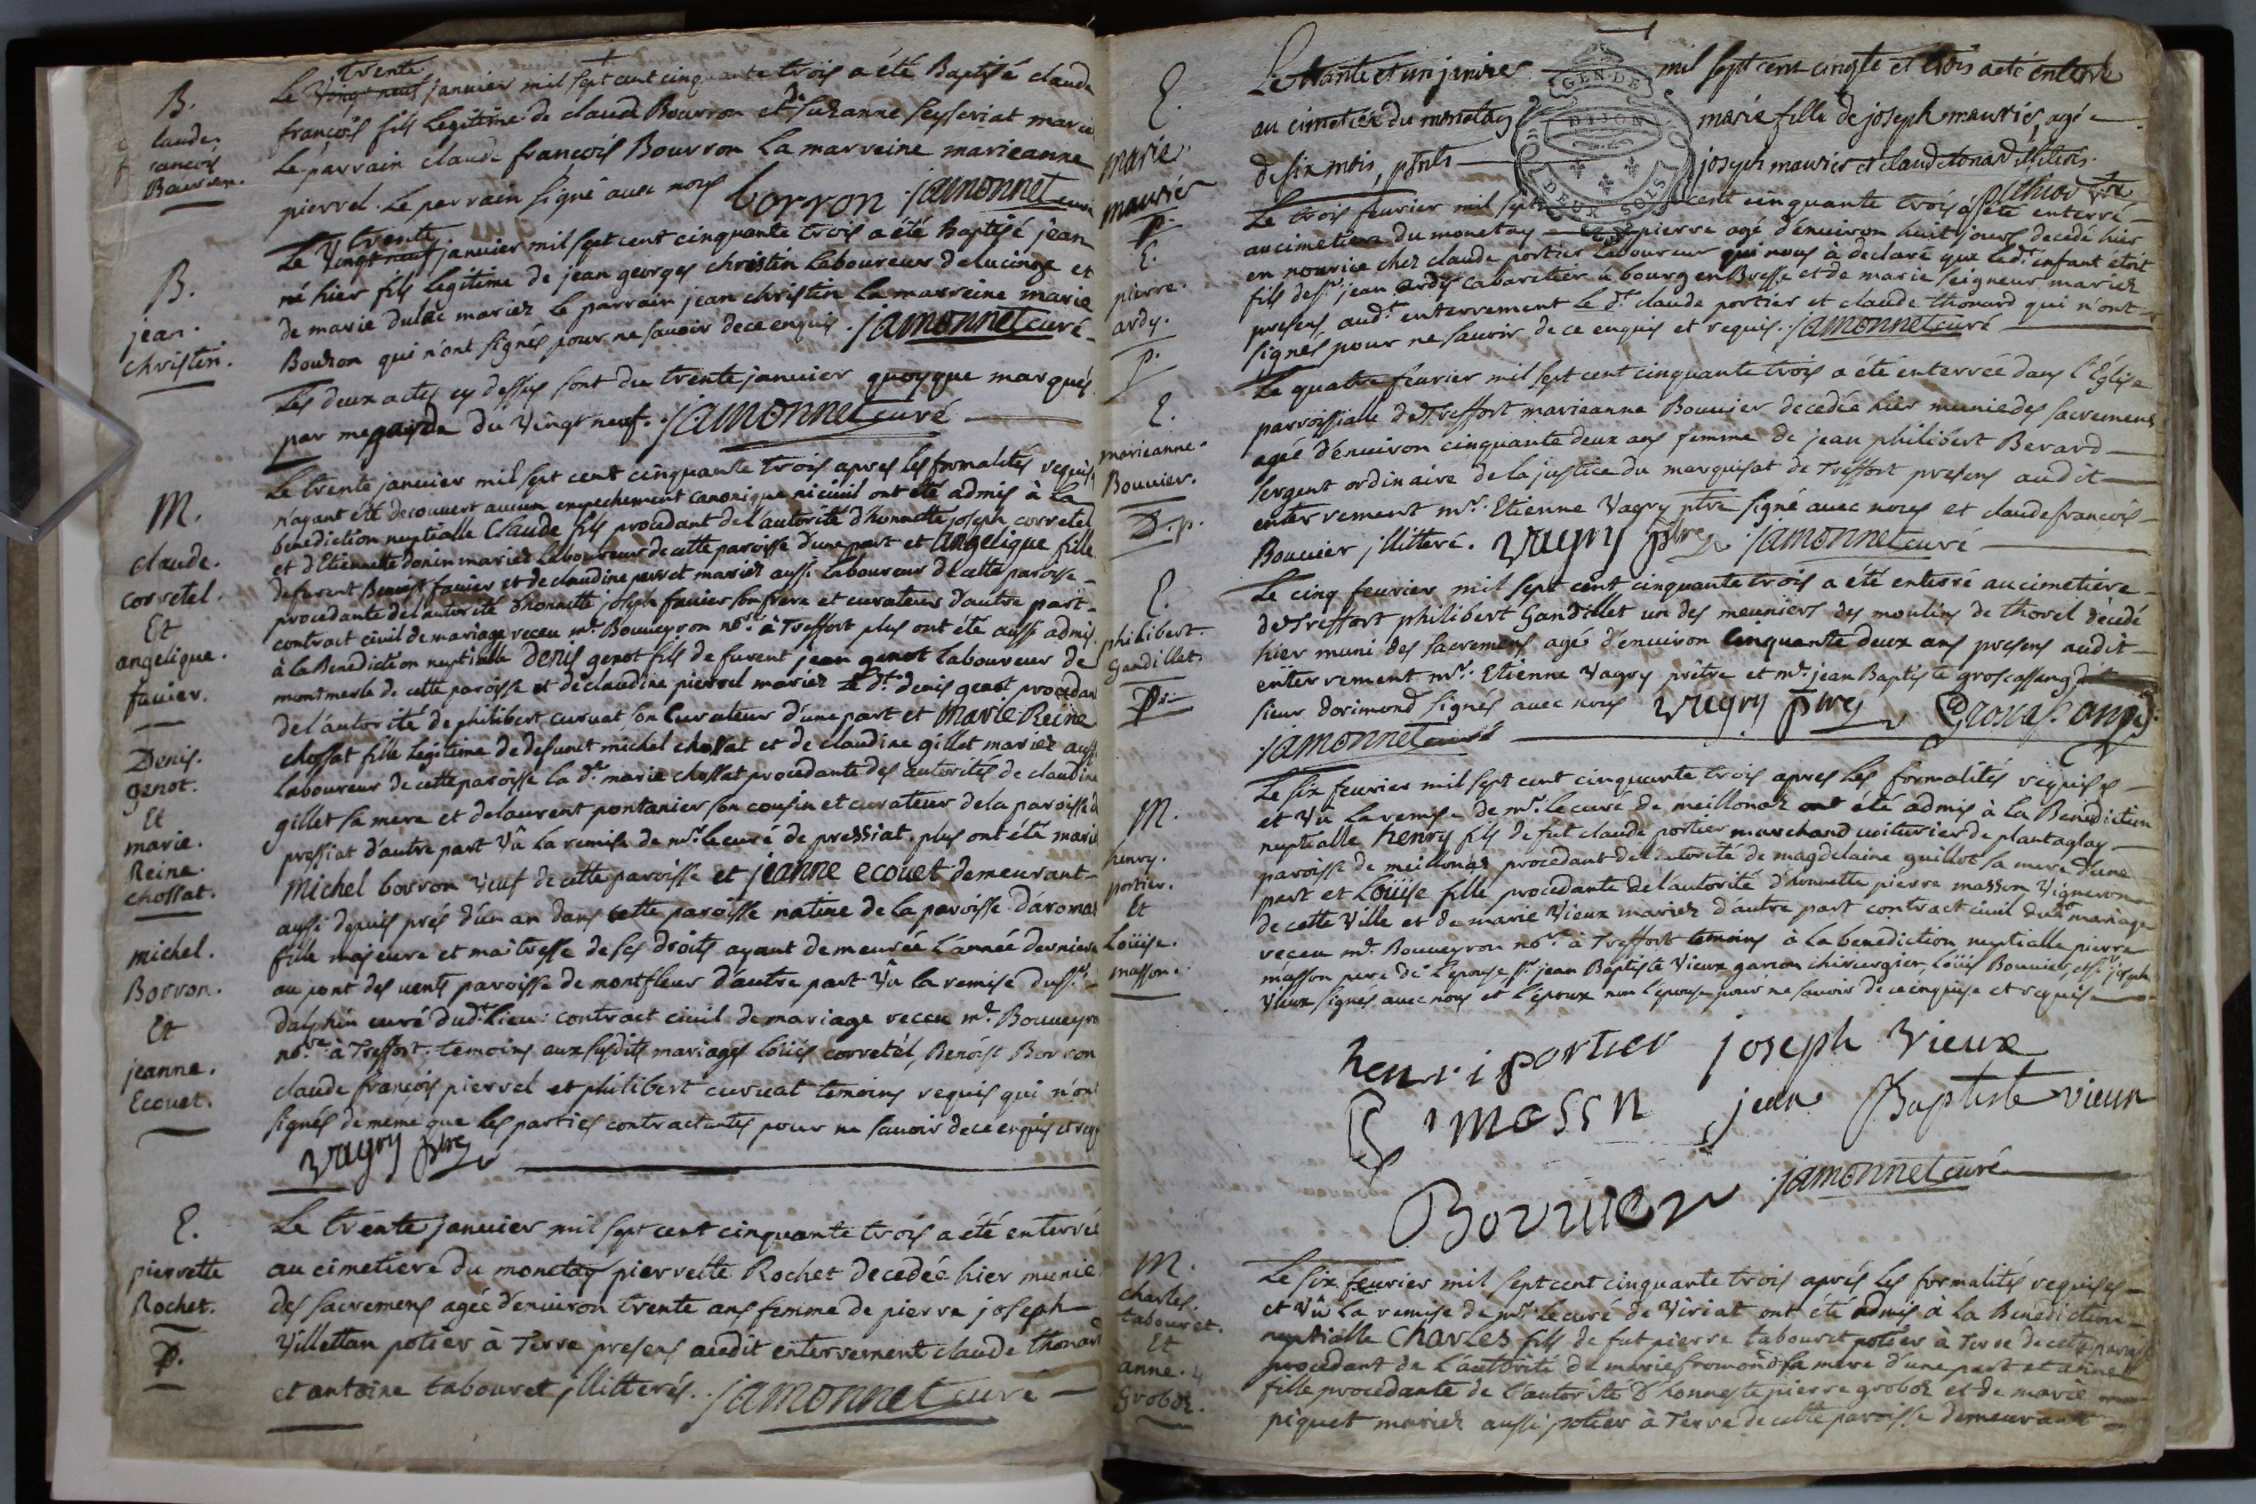 B.
claude.
françois
Bourron.
trente
Le Vingt neuf janvier mil sept cent cinquante trois a été Baptisé claude
françois fils Legitime de claude Bourron et de suzanne seyseriat mariés
Le parrain claude françois Bourron La marreine marieanne
pierrel. Le parrain signé avec nous borron jamonnet curé
B.
jean.
christin.
trente
Le Vingt neuf janvier mil sept cent cinquante trois a été baptisé jean
né hier fils legitime de jean georges christin Laboureur de lucinge et
de marie dulac mariez le parrain jean christin La marreine marie
Bouron qui n'ont signés pour ne savoir de ce enquis. jamonnet curé
Les deux actes cy dessus sont du trente janvier quoyque marqués
par megarde du Vingt neuf. jamonnet curé
M.
claude.
corretel.
Et
angelique.
favier.
Denis.
genot.
Et
marie.
Reine.
chossat.
michel.
Borron.
Et
jeanne.
Ecouet.
Le trente janvier mil sept cent cinquante trois apres les formalités requises
n'ayant été decouvert aucun empechement canonique ni civil ont été admis à La
benediction nuptialle Claude fils procedant de l'autorité d'honnette joseph corretel
et d'Etiennette donin mariez Laboureur de cette paroisse d'une part et Angelique fille
de furent Benoist favier et de claudine perret mariez aussi Laboureur de cette paroisse
procedante de l'autorité d'honnette joseph favier son frere et curateur d'autre part
contract civil de mariage receu me. Bouveyron nore. à Treffort plus ont été aussi admis
à la Benediction nuptialle Denis genot fils de furent jean genot laboureur de
montmerle de cette paroisse et de claudine pierrel mariez Le dt. denis genot procedant
de l'autorité de philibert curuat son Curateur d'une part et Marie Reine
chossat fille Legitime de defunct michel chossat et de claudine gillet mariez aussi
laboureur de cette paroisse la dte. marie chossat procedante des autorités de claudine
gillet sa mere et de laurent pontanier son cousin et curateur de la paroisse de
pressiat d'autre part Vû la remise de mr. le curé de pressiat. plus ont été mariés
Michel borron Veuf de cette paroisse et jeanne ecouet demeurant
aussi depuis prés d'un an dans cette paroisse native de la paroisse d'aromas
fille majeure et maitresse de ses droits ayant demeurée l'année derniere
au pont des vents paroisse de montfleur d'autre part Vû la remise du sr.
dalphin curé dudt. Lieu: contract civil de mariage receu me. Bouveyron
nore. à Treffort. temoins aux susdits mariages loüis corretel, Benoist Borron
claude françois pierrel et philibert curuat temoins requis qui n'ont
signés de meme que les parties contractantes pour ne savoir de ce enquis et requis
vugry ptre
E.
pierrette
Rochet.
p.
Le trente janvier mil sept cent cinquante trois a été enterrée
au cimetiere du monetay pierrette Rochet decedée hier munie
des sacremens agée d'environ trente ans femme de pierre joseph
Villettan potier à Terre presens audit enterrement claude thonard
et antoine tabouret illitterés. jamonnet curé
E.
marie
mauriér
p.
Le trante et un janvier mil sept cent cinqte et trois a eté enterre
au cimetiere du monetay marie fille de joseph mauriés, agé
de six mois, pnts joseph maurier et claude tonard illiterés.
GEN. DE
DIJON
DEUX SOLS
E.
pierre.
ardy.
p.
Le trois fevrier mil sept cent cinquante trois a été enterré
au cimetiere du monetay pierre agé d'environ huit jours decedé hier
en nourice chez claude portier Laboureur qui nous à declaré que ledt. enfant etoit
fils de sr. jean ardy cabaretier à bourg en Bresse et de marie seigneur mariez
presens audt. enterrement le dt. claude portier et claude thonard qui n'ont
signés pour ne savoir de ce enquis et requis. jamonnet curé
E.
marieanne.
Bouvier.
D. p.
Le quatre fevrier mil sept cent cinquante trois a été enterrée dans l'Eglise
parroissialle de Treffort marieanne Bouvier decedée hier munie des sacremens
agée d'environ cinquante deux ans femme de jean philibert Berard
sergent ordinaire de la justice du marquisat de Treffort presens audit
enterrement mr. Etienne Vugry ptre signé avec nous et claude françois
Bouvier illitteré. Vugry ptre jamonnet curé
E.
philibert.
Gandillet.
p.
Le cinq fevrier mil sept cent cinquante trois a été enterré au cimetiere
de Treffort philibert Gandillet un des meuniers des moulins de thorel décédé
hier muni des sacremens agé d'environ Cinquante deux ans presens audit
enterrement mr. Etienne Vugry prêtre et me. jean Baptiste groscassang
sieur dorimond signés avec nous Vugry ptre
jamonnet curé
M.
henry.
portier.
Et
Loüise.
masson.
Le six fevrier mil sept cent cinquante trois apres les formalités requises
et Vû la remise de mr. le curé de meillonaz ont été admis à la Benediction
nuptialle henry fils de fut claude portier marchand voiturier de plantaglay
paroisse de meillonaz procedant de l'autorité de magdelaine guillot sa mere d'une
part et Loüise fille procedante de l'autorité d'honnette pierre masson Vigneron
de cette Ville et de marie Vieux mariez d'autre part contract civil dudt. mariage
receu me. Bouveyron nore. à Treffort temoins à la benediction nuptialle pierre
masson pere de l'epouse sr. jean Baptiste Vieux garcon chirurgien, Loüis Bouvier, et sr. joseph
Vieux signés avec nous et l'epoux non l'épouse pour ne savoir de ce enquise et requise
henri portier joseph Vieux
P masson jean Baptiste vieux
Bouvier jamonnet curé
M.
charles.
tabouret.
Et
anne.
Groboz.
Le six fevrier mil sept cent cinquante trois aprés les formalités requises
et Vû la remise de mr. le curé de Viriat ont été admis à la Benediction
nuptialle Charles fils de fut pierre tabouret potier à Terre de cette paroisse
procedant de l'autorité de marie fromond sa mere d'une part et anne
fille procedante de l'autorité d'honneste pierre groboz et de marie
piquet mariez aussi potier à Terre de cette paroisse demeurant